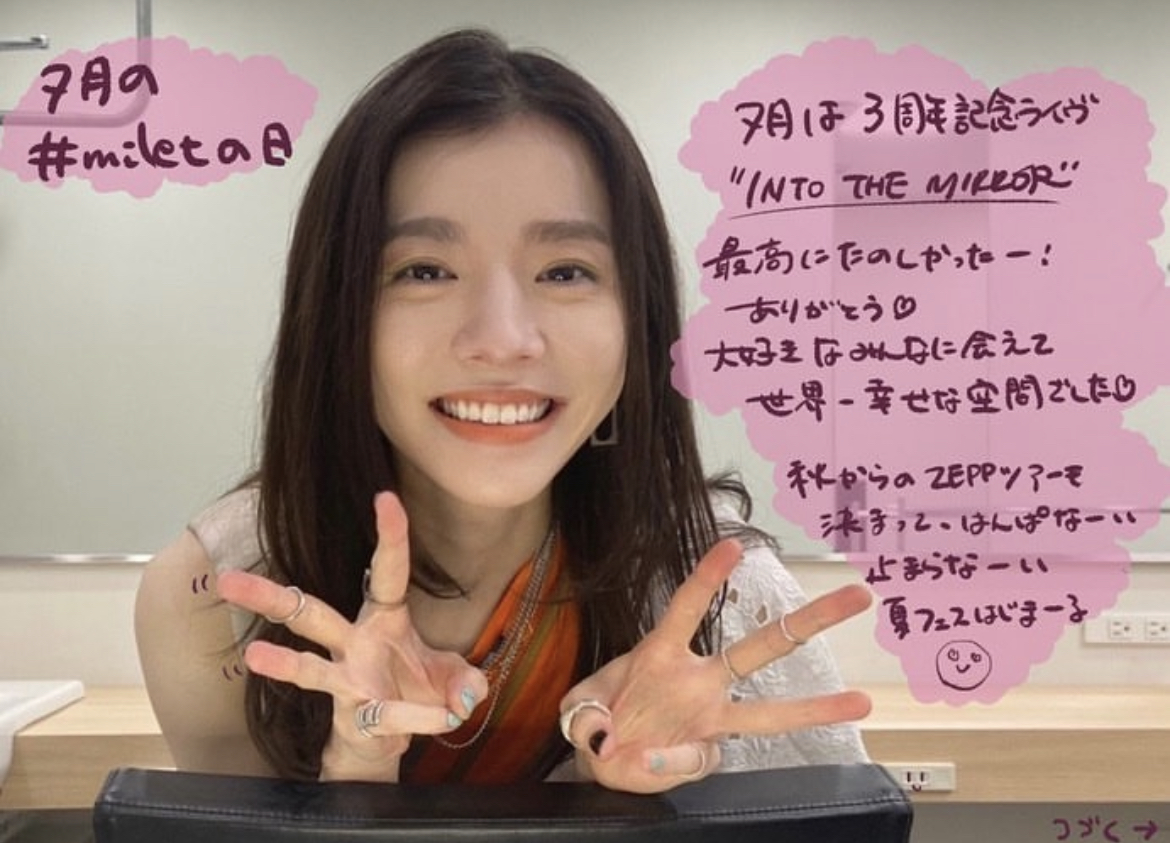 7月の
#miletの日
7月は3周年記念ライヴ
"INTO THE MIRROR"
最高にたのしかったー!
ありがとう♡
大好きなみんなに会えて
世界一幸せな空間でした♡
秋からのZEPPツアーも
決まって、はんぱなーい
止まらなーい
夏フェスはじまーる
つづく→